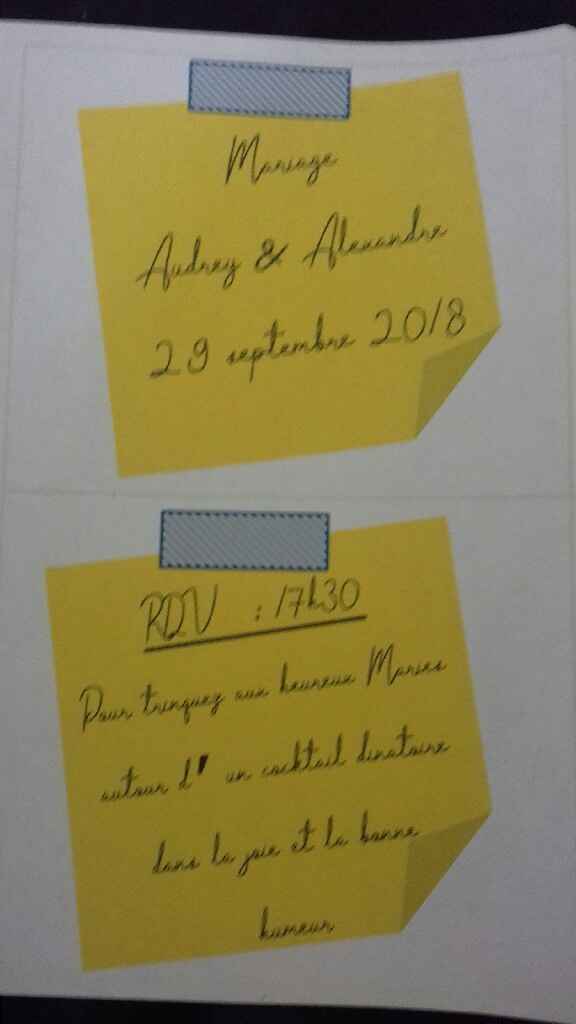 Mariage
Audrey & Alexandre
29 septembre 2018
RDV : 17h30
Pour trinquez aux heureux Maries
autour d' un cocktail dinatoire
dans la joie et la bonne
humeur